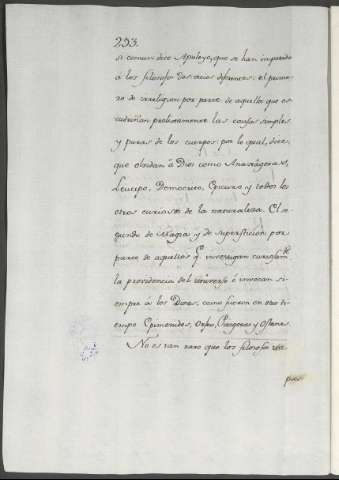 233.
si comun dice Apuleyo, que se han imputado
á los filosofos dos vicios diferentes: el prime-
ro de irreligion por parte de aquellos que es-
cudriñan prolixamente las causas simples
y puras de los cuerpos por lo qual, dice,
que olvidan á Dios como Anaxágoras,
Leucipo, Democrito, Epicuro, y todos los
otros curiosos de la naturaleza. El se-
gundo de Magia y de supersticion por
parte de aquellos q.e investigan curiosam.te
la providencia del universo é invocan si-
empre á los Dioses, como fueron en otro ti-
empo Epimenides, Orfeo, Pitagoras y Ostanes.
No es tan raro que los filosofos
pues